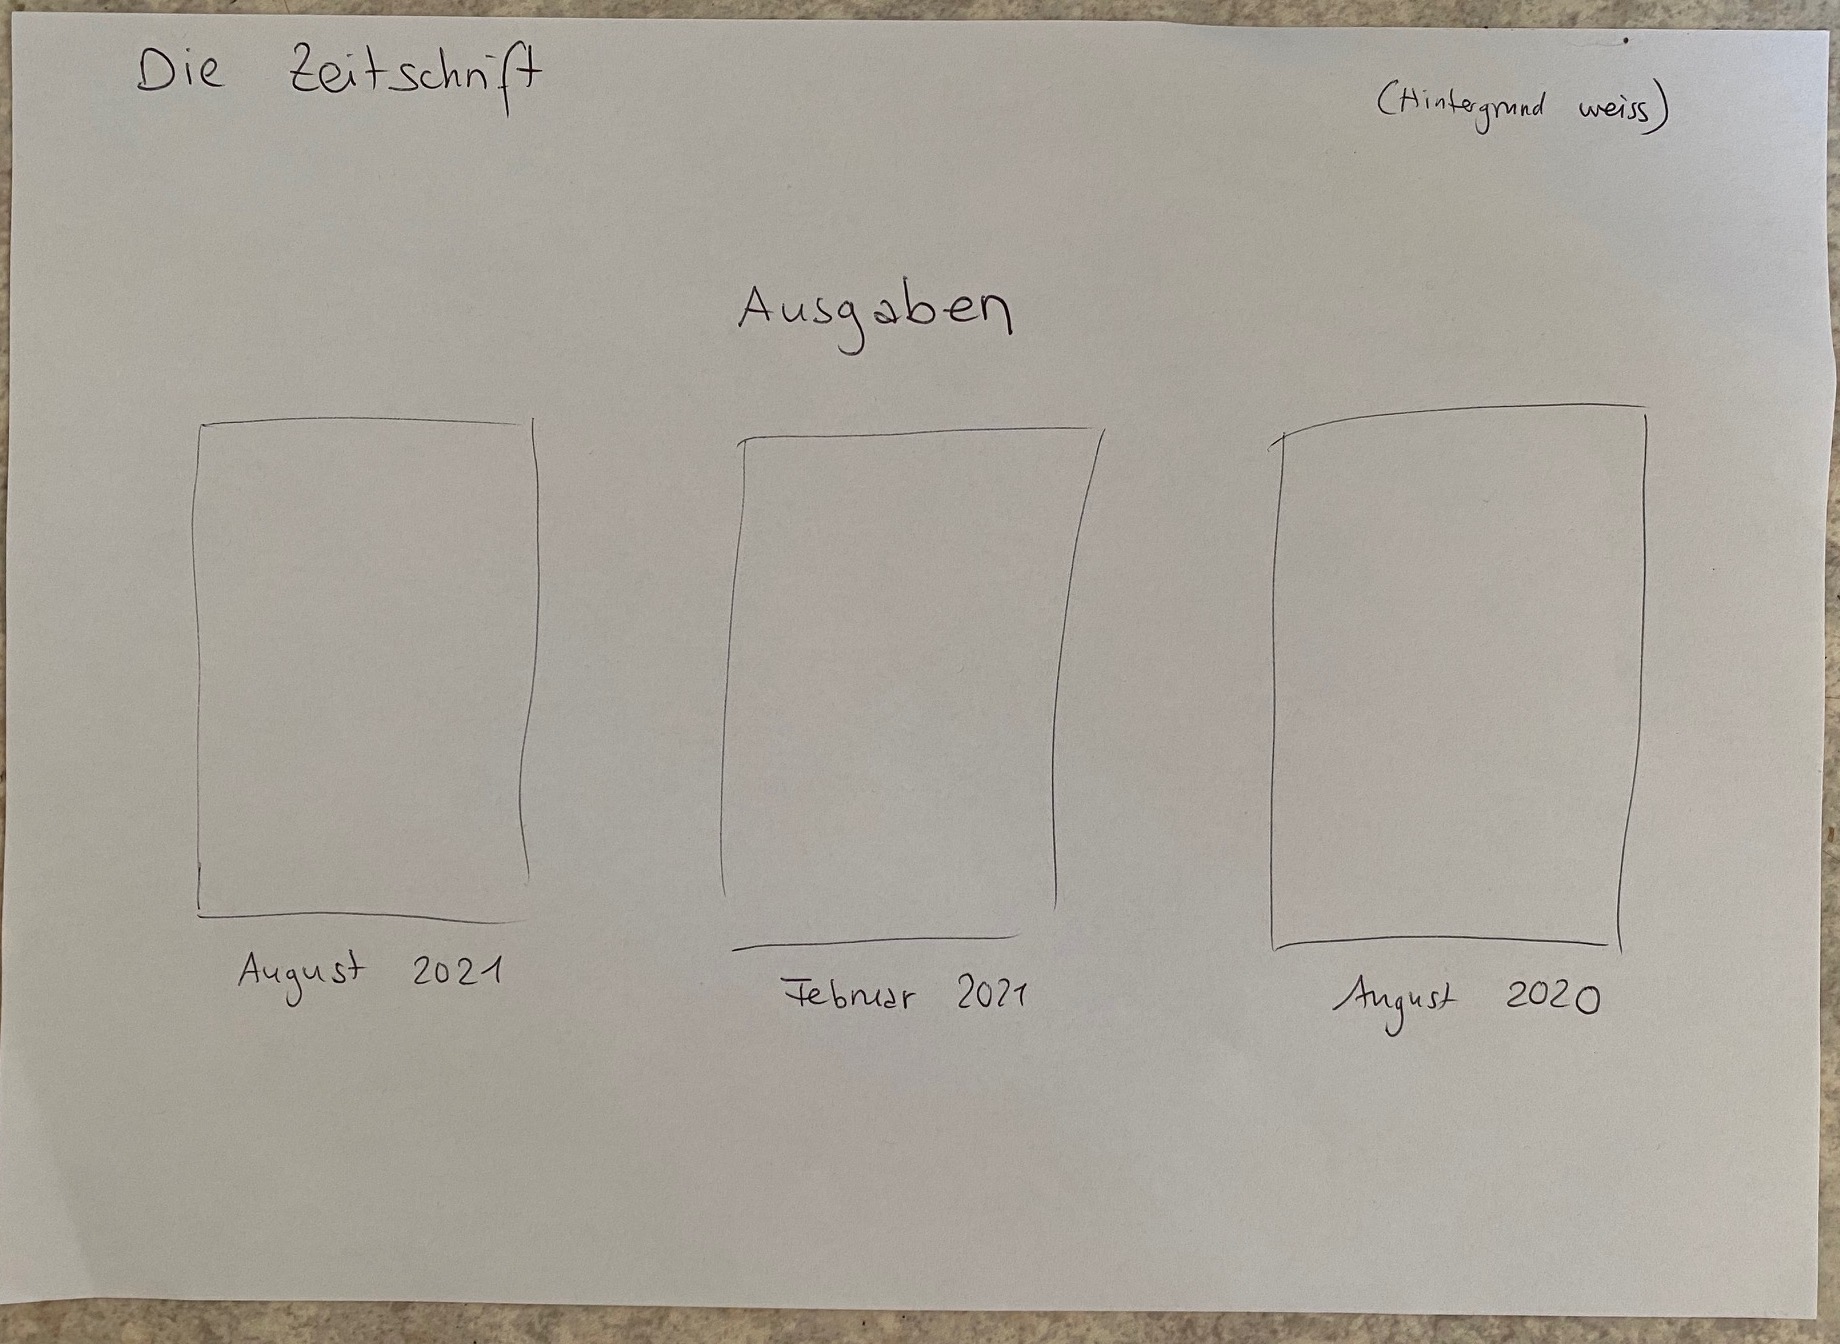 Die Zeitschrift
(Hintergrund weiss)
Ausgaben
August 2021
Februar 2021
August 2020